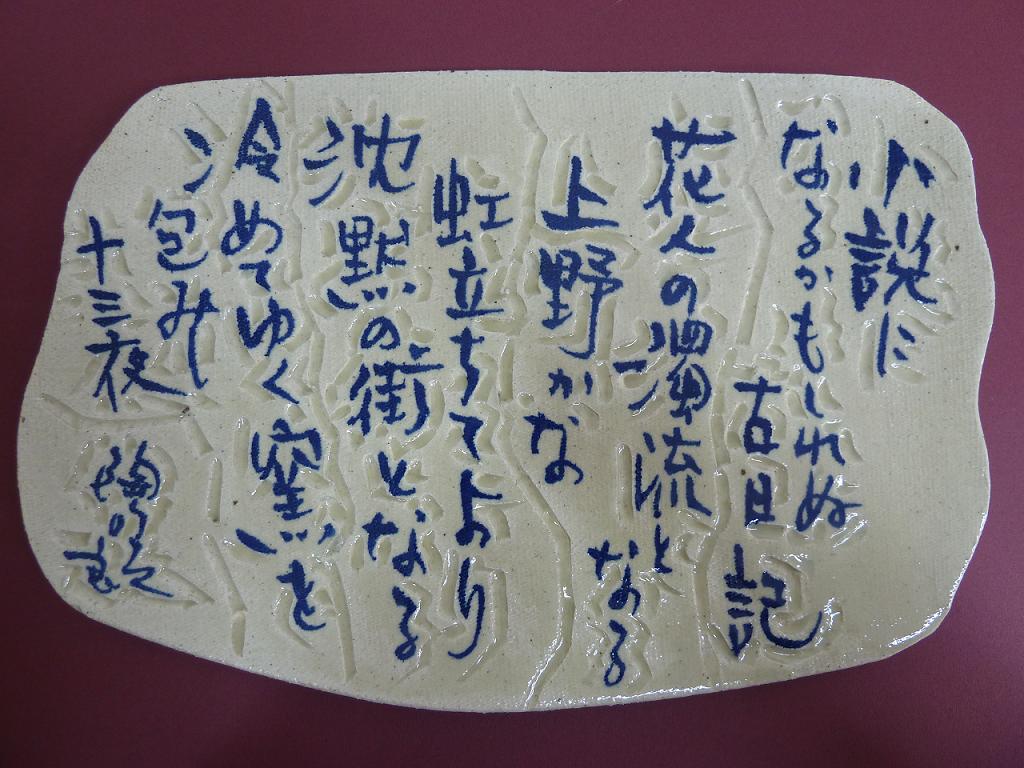 小説に
なるかもしれぬ
古日記
花人の濁流と
なる
上野かな
虹立ちてより
沈黙の街となる
冷めてゆく窯を
包みし
十三夜